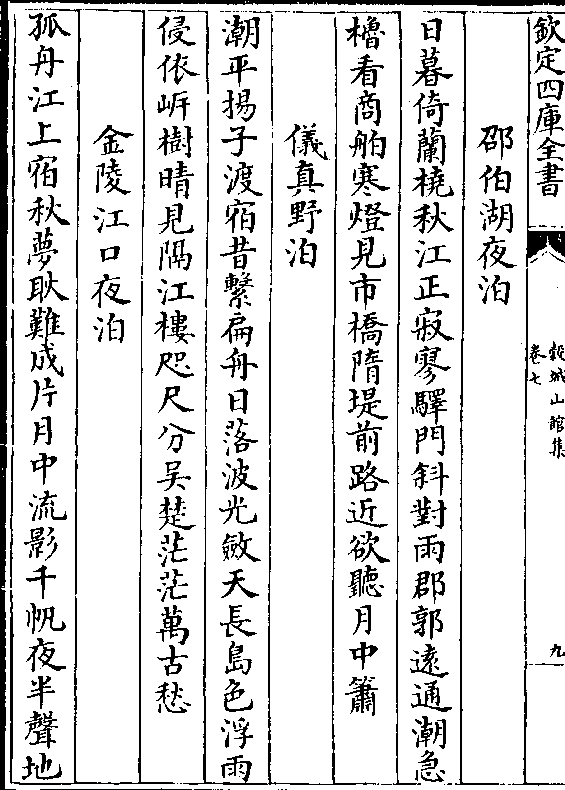 欽定四庫全書
穀城山館集
卷七
九
邵伯湖夜泊
日暮倚蘭橈秋江正寂寥驛門斜對雨郡郭遠通潮急
櫓看商舶寒燈見市橋隋堤前路近欲聽月中簫
儀真野泊
潮平揚子渡宿昔繫扁舟日落波光斂天長島色浮雨
侵依㟁樹晴見隔江樓咫尺分吳楚茫茫萬古愁
金陵江口夜泊
孤舟江上宿秋夢耿難成片月中流影千帆夜半聲地